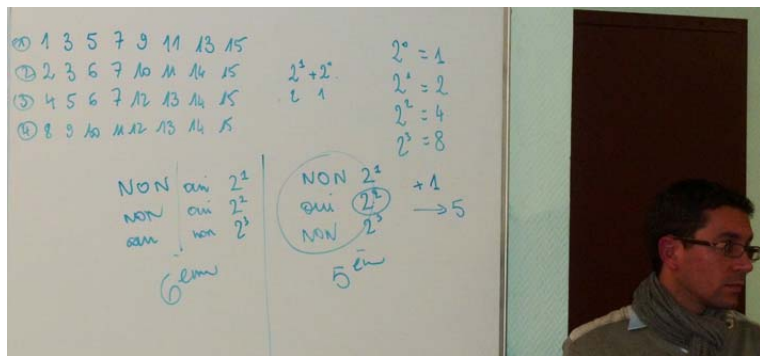 ① 1 3 5 7 9 11 13 15
② 2 3 6 7 10 11 14 15
③ 4 5 6 7 12 13 14 15
④ 8 9 10 11 12 13 14 15
2¹ + 2⁰
2 1
2⁰ = 1
2¹ = 2
2² = 4
2³ = 8
NON oui 2¹
NON oui 2²
oui non 2³
6 em
NON 2¹ + 1
oui 2² → 5
NON 2³
5 em